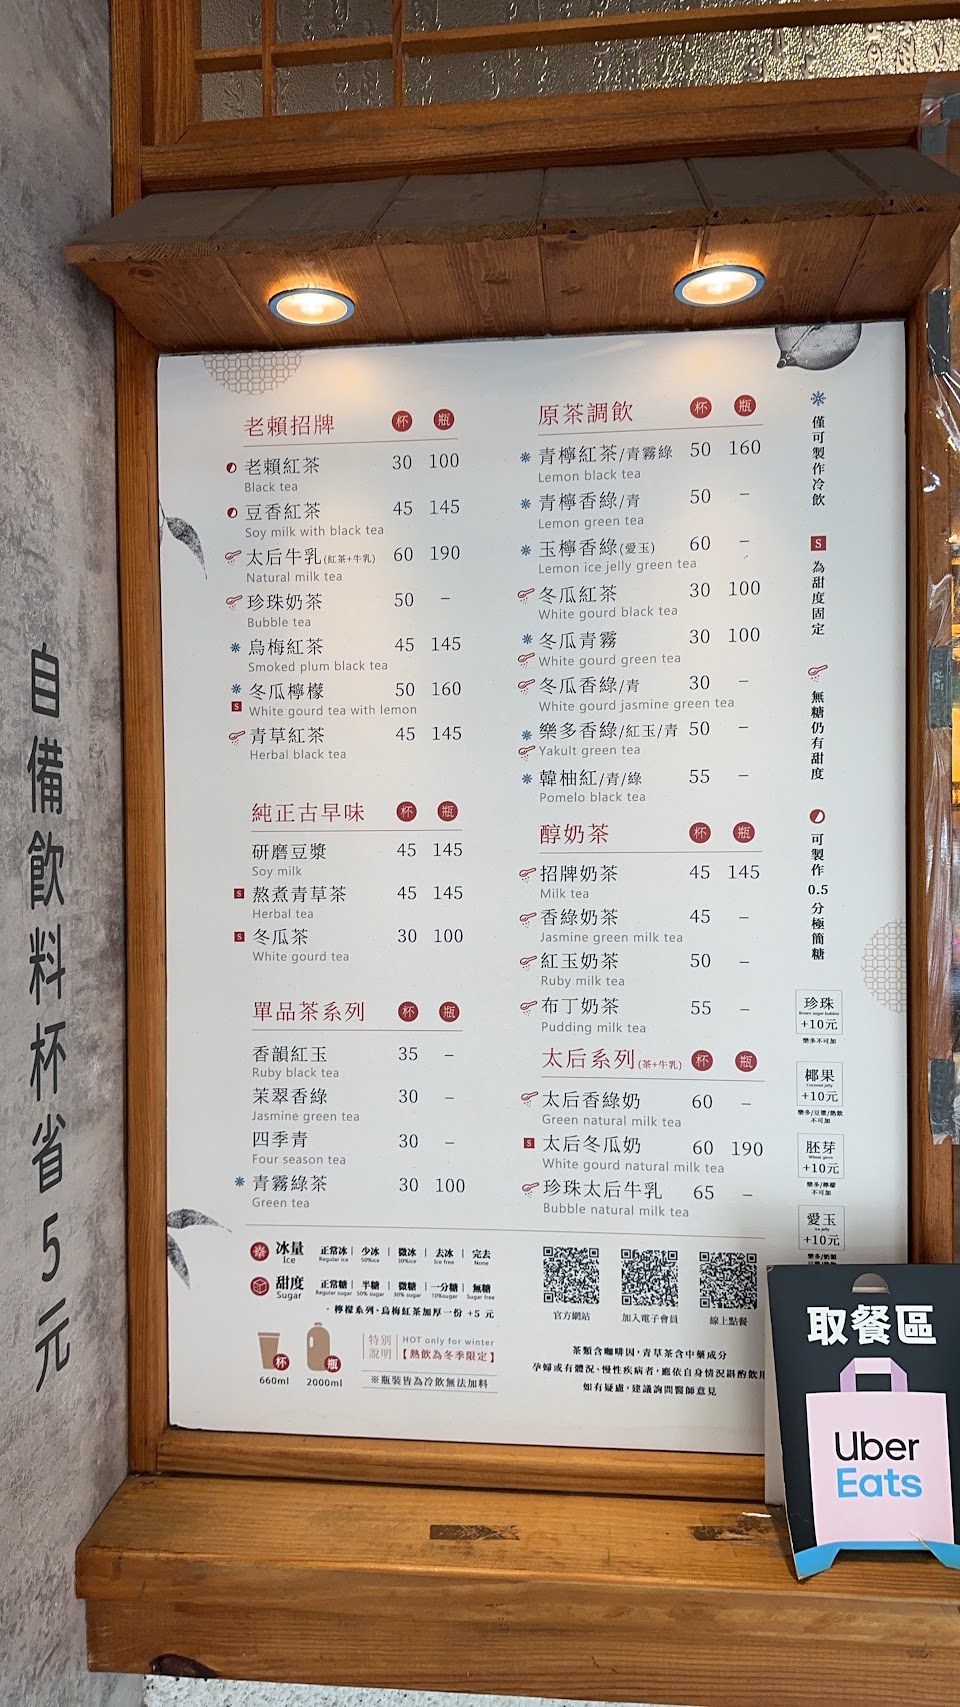 自備飲料杯省5元
老賴招牌 杯 瓶
老賴紅茶 30 100
Black tea
豆香紅茶 45 145
Soy milk with black tea
太后牛乳(紅茶+牛乳) 60 190
Natural milk tea
珍珠奶茶 50 –
Bubble tea
烏梅紅茶 45 145
Smoked plum black tea
冬瓜檸檬 50 160
S White gourd tea with lemon
青草紅茶 45 145
Herbal black tea
純正古早味 杯 瓶
研磨豆漿 45 145
Soy milk
S 熬煮青草茶 45 145
Herbal tea
S 冬瓜茶 30 100
White gourd tea
單品茶系列 杯 瓶
香韻紅玉 35 –
Ruby black tea
茉翠香綠 30 –
Jasmine green tea
四季青 30 –
Four season tea
青霧綠茶 30 100
Green tea
原茶調飲 杯 瓶
青檸紅茶/青霧綠 50 160
Lemon black tea
青檸香綠/青 50 –
Lemon green tea
玉檸香綠(愛玉) 60 –
Lemon ice jelly green tea
冬瓜紅茶 30 100
White gourd black tea
冬瓜青霧 30 100
White gourd green tea
冬瓜香綠/青 30 –
White gourd jasmine green tea
樂多香綠/紅玉/青 50 –
Yakult green tea
韓柚紅/青/綠 55 –
Pomelo black tea
醇奶茶 杯 瓶
招牌奶茶 45 145
Milk tea
香綠奶茶 45 –
Jasmine green milk tea
紅玉奶茶 50 –
Ruby milk tea
布丁奶茶 55 –
Pudding milk tea
太后系列(茶+牛乳) 杯 瓶
太后香綠奶 60 –
Green natural milk tea
S 太后冬瓜奶 60 190
White gourd natural milk tea
珍珠太后牛乳 65 –
Bubble natural milk tea
僅可製作冷飲
S 為甜度固定
無糖仍有甜度
可製作0.5分極簡糖
珍珠
Brown sugar bubble
+10元
樂多不可加
椰果
Coconut jelly
+10元
樂多/豆漿/熱飲
不可加
胚芽
Wheat germ
+10元
樂多/檸檬
不可加
愛玉
Ice jelly
+10元
冰量 正常冰 | 少冰 | 微冰 | 去冰 | 完去
Ice Regular ice 50%ice 30%ice Ice free None
甜度 正常糖 | 半糖 | 微糖 | 一分糖 | 無糖
Sugar Regular sugar 50% sugar 30% sugar 10%sugar Sugar free
・檸檬系列、烏梅紅茶加厚一份 +5 元
杯 瓶
660ml 2000ml
特別說明 HOT only for winter
【熱飲為冬季限定】
※瓶裝皆為冷飲無法加料
官方網站 加入電子會員 線上點餐
茶類含咖啡因，青草茶含中藥成分
孕婦或有體況、慢性疾病者，應依自身情況斟酌飲用
如有疑慮，建議詢問醫師意見
取餐區
Uber
Eats